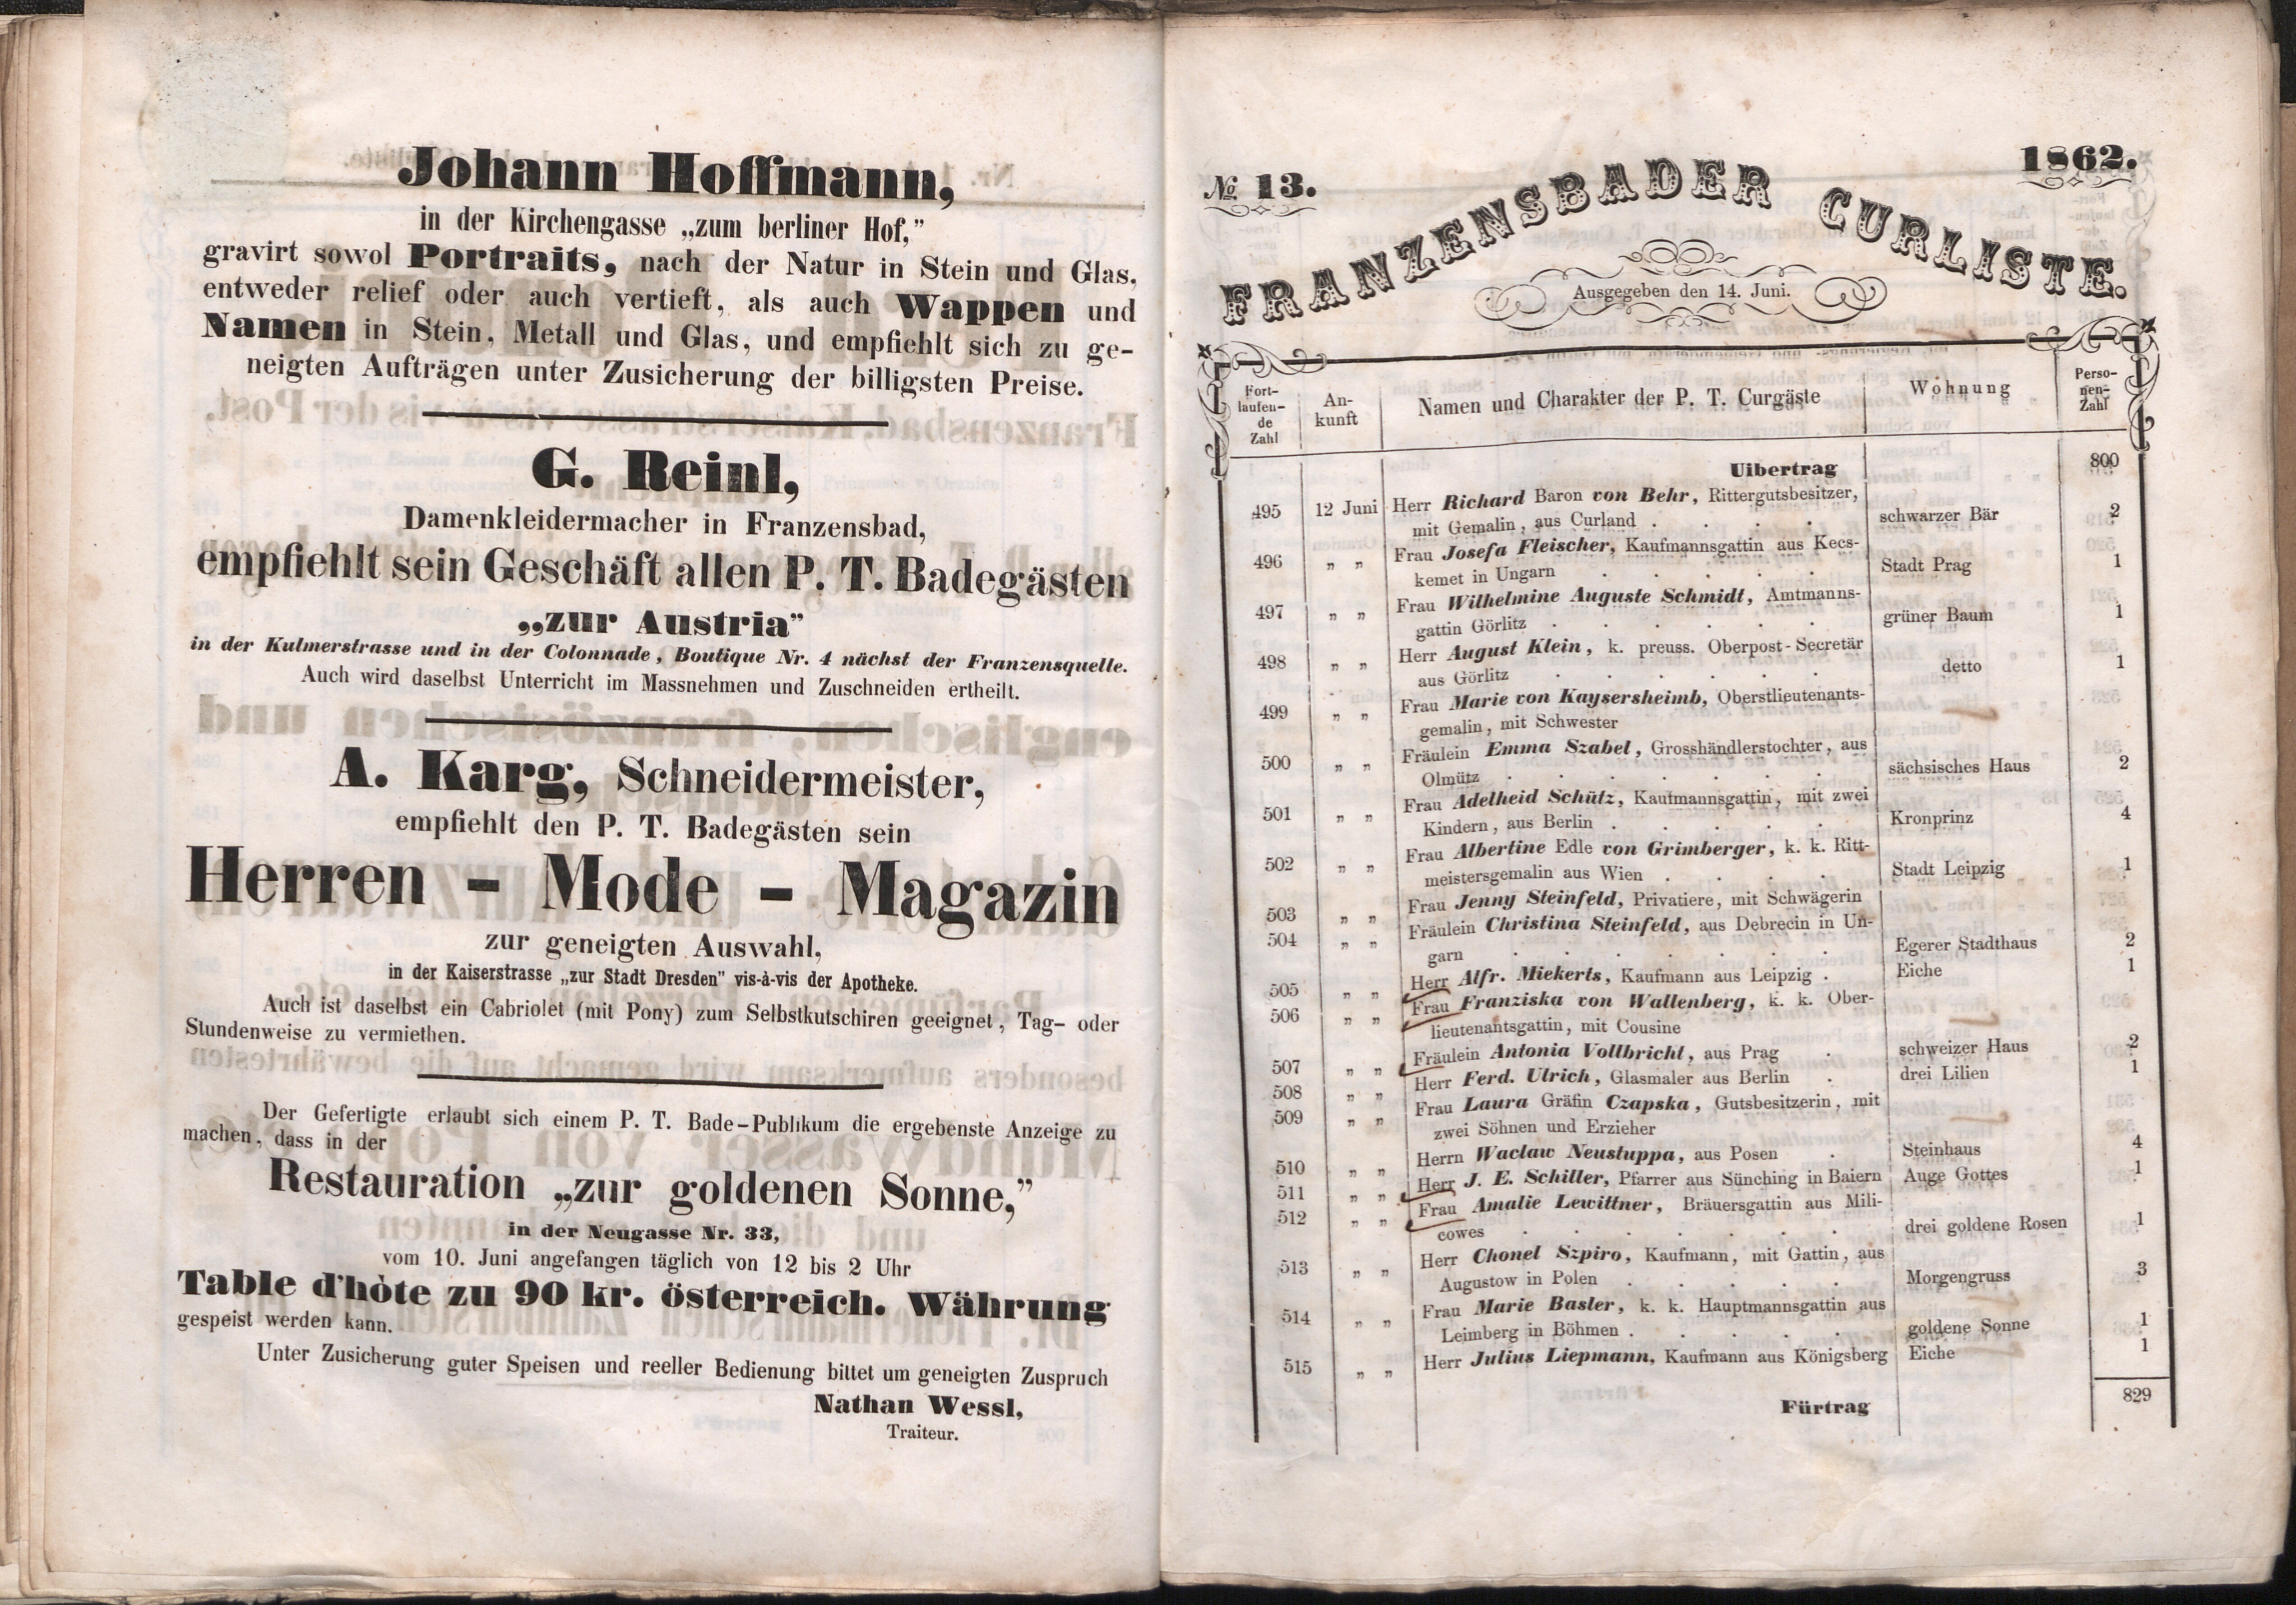 Johann Hoffmann,
in der Kirchengasse „zum berliner Hof,”
gravirt sowol Portraits, nach der Natur in Stein und Glas,
entweder relief oder auch vertieft, als auch Wappen und
Namen in Stein, Metall und Glas, und empfiehlt sich zu ge-
neigten Aufträgen unter Zusicherung der billigsten Preise.
G. Reinl,
Damenkleidermacher in Franzensbad,
empfiehlt sein Geschäft allen P. T. Badegästen
„zur Austria”
in der Kulmerstrasse und in der Colonnade, Boutique Nr. 4 nächst der Franzensquelle.
Auch wird daselbst Unterricht im Massnehmen und Zuschneiden ertheilt.
A. Karg, Schneidermeister,
empfiehlt den P. T. Badegästen sein
Herren - Mode - Magazin
zur geneigten Auswahl,
in der Kaiserstrasse „zur Stadt Dresden” vis-à-vis der Apotheke.
Auch ist daselbst ein Cabriolet (mit Pony) zum Selbstkutschiren geeignet, Tag- oder
Stundenweise zu vermiethen.
Der Gefertigte erlaubt sich einem P. T. Bade-Publikum die ergebenste Anzeige zu
machen, dass in der
Restauration „zur goldenen Sonne,”
in der Neugasse Nr. 33,
vom 10. Juni angefangen täglich von 12 bis 2 Uhr
Table d'hòte zu 90 kr. österreich. Währung
gespeist werden kann.
Unter Zusicherung guter Speisen und reeller Bedienung bittet um geneigten Zuspruch
Nathan Wessl,
Traiteur.
№ 13.
1862.
FRANZENSBADER CURLISTE.
Ausgegeben den 14. Juni.
Fort-
laufen-
de
Zahl
An-
kunft
Namen und Charakter der P. T. Curgäste
Wohnung
Perso-
nen-
Zahl
Uibertrag 800
495 12 Juni Herr Richard Baron von Behr, Rittergutsbesitzer,
mit Gemalin, aus Curland . . . . schwarzer Bär 2
496 „ „ Frau Josefa Fleischer, Kaufmannsgattin aus Kecs-
kemet in Ungarn . . . . . Stadt Prag 1
497 „ „ Frau Wilhelmine Auguste Schmidt, Amtmanns-
gattin Görlitz . . . . . . grüner Baum 1
498 „ „ Herr August Klein, k. preuss. Oberpost-Secretär
aus Görlitz . . . . . . detto 1
499 „ „ Frau Marie von Kaysersheimb, Oberstlieutenants-
gemalin, mit Schwester
500 „ „ Fräulein Emma Szabel, Grosshändlerstochter, aus
Olmütz . . . . . . . sächsisches Haus 2
501 „ „ Frau Adelheid Schütz, Kaufmannsgattin, mit zwei
Kindern, aus Berlin . . . . . Kronprinz 4
502 „ „ Frau Albertine Edle von Grimberger, k. k. Ritt-
meistersgemalin aus Wien . . . . Stadt Leipzig 1
503 „ „ Frau Jenny Steinfeld, Privatiere, mit Schwägerin
504 „ „ Fräulein Christina Steinfeld, aus Debrecin in Un-
garn . . . . . . Egerer Stadthaus 2
505 „ „ Herr Alfr. Miekerts, Kaufmann aus Leipzig . Eiche 1
506 „ „ Frau Franziska von Wallenberg, k. k. Ober-
lieutenantsgattin, mit Cousine
507 „ „ Fräulein Antonia Vollbricht, aus Prag . schweizer Haus 2
508 „ „ Herr Ferd. Ulrich, Glasmaler aus Berlin . drei Lilien 1
509 „ „ Frau Laura Gräfin Czapska, Gutsbesitzerin, mit
zwei Söhnen und Erzieher
510 „ „ Herrn Waclaw Neustuppa, aus Posen . Steinhaus 4
511 „ „ Herr J. E. Schiller, Pfarrer aus Sünching in Baiern Auge Gottes 1
512 „ „ Frau Amalie Lewittner, Bräuersgattin aus Mili-
cowes . . . . . . drei goldene Rosen 1
513 „ „ Herr Chonel Szpiro, Kaufmann, mit Gattin, aus
Augustow in Polen . . . . . Morgengruss 3
514 „ „ Frau Marie Basler, k. k. Hauptmannsgattin aus
Leimberg in Böhmen . . . . . goldene Sonne 1
515 „ „ Herr Julius Liepmann, Kaufmann aus Königsberg Eiche 1
Fürtrag 829